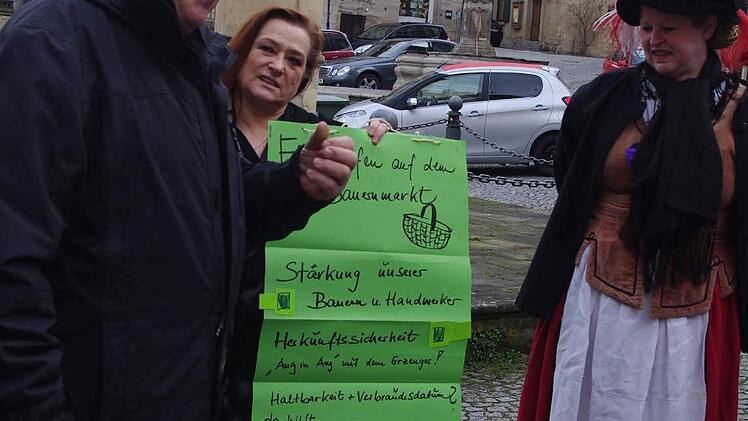 auf dem
Bauernmarkt
Stärkung unserer
Bauern u. Handwerker
Herkunftssicherheit
„Aug in Aug" mit dem Erzeuger!
Haltbarkeit + Verbrauchsdatum?
da hilft